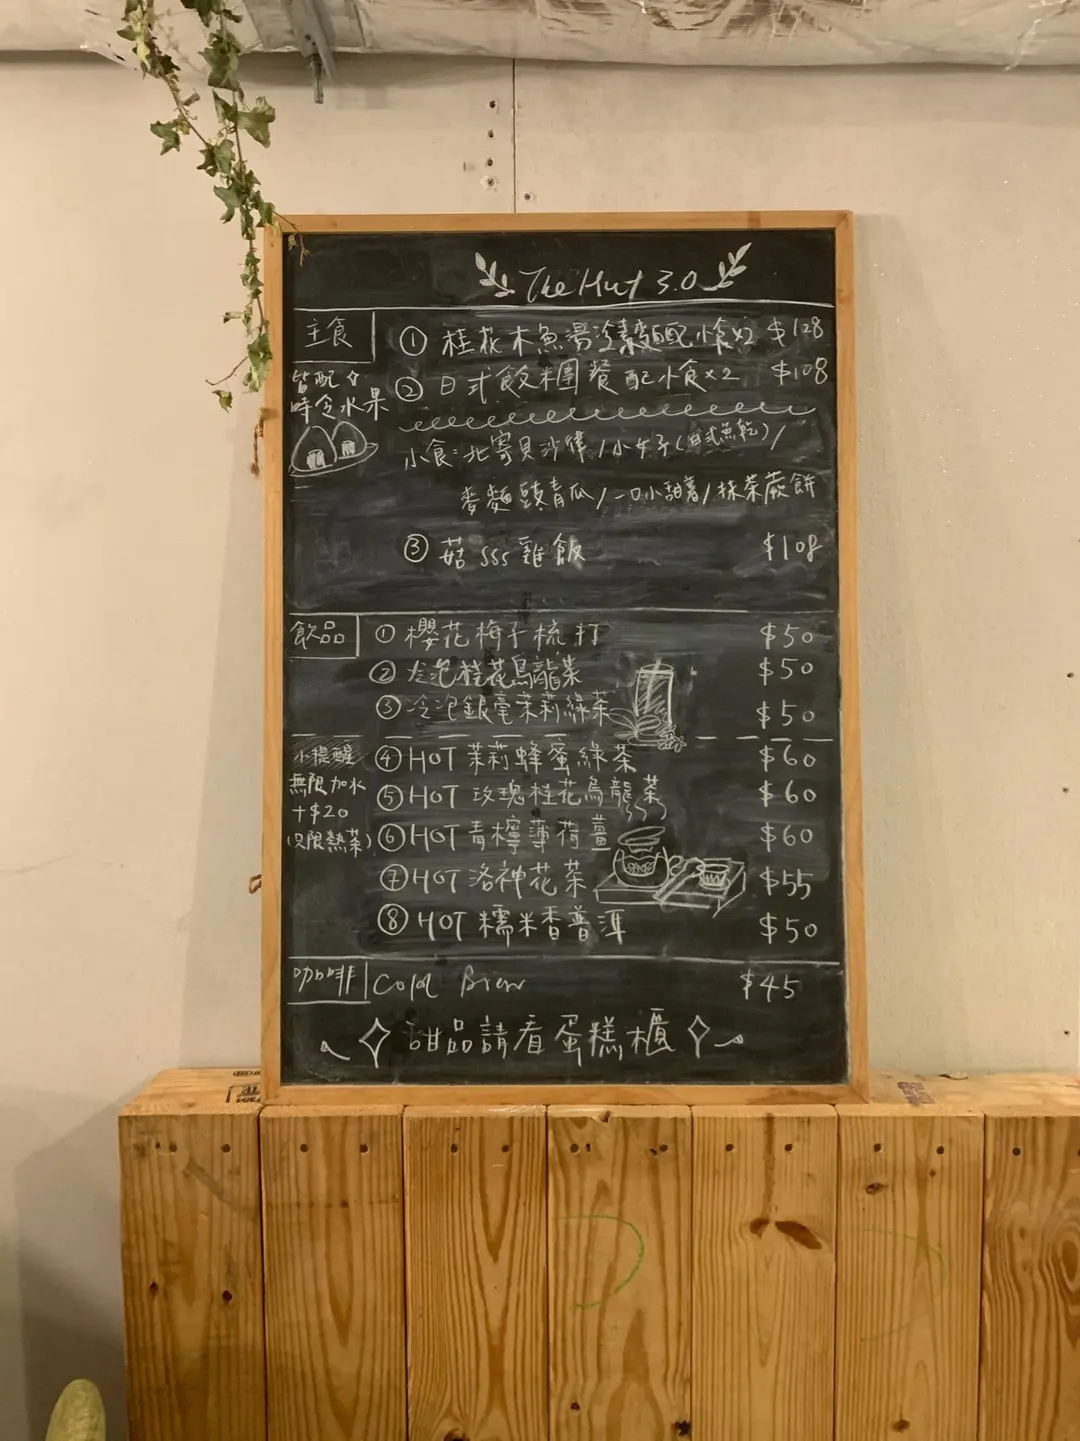 The Hut 3.0
主食
皆配
時令水果
① 桂花木魚湯冷素麵配小食x2 $128
② 日式飯糰餐配小食x2 $108
小食:北寄貝沙律/小女子(日式魚乾)/
麥麵豉青瓜/一口小甜薯/抹茶蕨餅
③ 菇sss雞飯 $108
飲品
① 櫻花梅子梳打 $50
② 冷泡桂花烏龍茶 $50
③ 冷泡銀毫茉莉綠茶 $50
小提醒
無限加水
+$20
(只限熱茶)
④ HOT 茉莉蜂蜜綠茶 $60
⑤ HOT 玫瑰桂花烏龍茶 $60
⑥ HOT 青檸薄荷薑 $60
⑦ HOT 洛神花茶 $55
⑧ HOT 糯米香普洱 $50
咖啡
Cold Brew $45
甜品請看蛋糕櫃